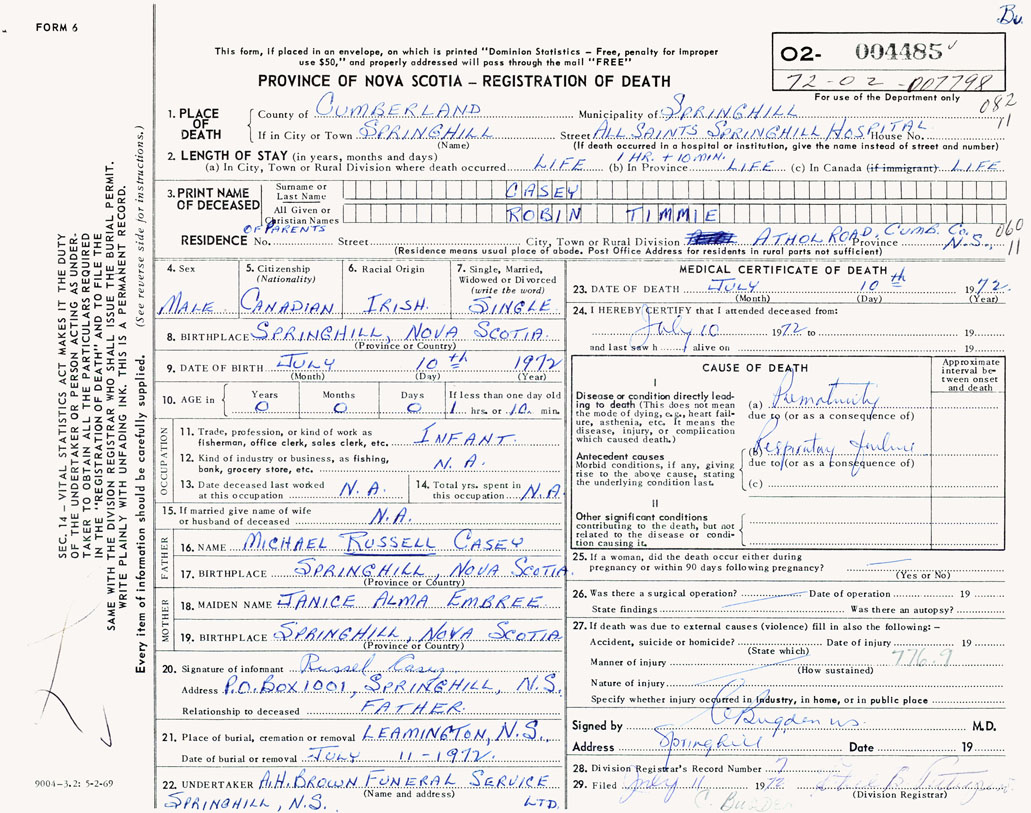 FORM 6
Bu
This form, if placed in an envelope, on which is printed "Dominion Statistics – Free, penalty for improper
use $50," and properly addressed will pass through the mail "FREE"
PROVINCE OF NOVA SCOTIA – REGISTRATION OF DEATH
02- 004485
72-02-007798
For use of the Department only
082
11
SEC. 14 – VITAL STATISTICS ACT MAKES IT THE DUTY
OF THE UNDERTAKER OR PERSON ACTING AS UNDER-
TAKER TO OBTAIN ALL THE PARTICULARS REQUIRED
IN THE "REGISTRATION OF DEATH" AND TO FILE THE
SAME WITH THE DIVISION REGISTRAR WHO SHALL ISSUE THE BURIAL PERMIT.
WRITE PLAINLY WITH UNFADING INK. THIS IS A PERMANENT RECORD.
Every item of information should be carefully supplied. (See reverse side for instructions.)
1. PLACE OF DEATH
County of CUMBERLAND Municipality of SPRINGHILL
If in City or Town SPRINGHILL Street ALL SAINTS SPRINGHILL HOSPITAL House No.
(Name) (If death occurred in a hospital or institution, give the name instead of street and number)
2. LENGTH OF STAY (in years, months and days) 1 HR. + 10 MIN.
(a) In City, Town or Rural Division where death occurred LIFE (b) In Province LIFE (c) In Canada (if immigrant) LIFE
3. PRINT NAME OF DECEASED
Surname or Last Name CASEY
All Given or Christian Names ROBIN TIMMIE
OF PARENTS
RESIDENCE No. Street City, Town or Rural Division ATHOL ROAD, CUMB. CO. Province N.S.
060
11
(Residence means usual place of abode. Post Office Address for residents in rural parts not sufficient)
4. Sex 5. Citizenship (Nationality) 6. Racial Origin 7. Single, Married, Widowed or Divorced (write the word)
MALE CANADIAN IRISH. SINGLE
8. BIRTHPLACE SPRINGHILL, NOVA SCOTIA.
(Province or Country)
9. DATE OF BIRTH JULY 10th 1972
(Month) (Day) (Year)
10. AGE in Years Months Days If less than one day old
0 0 0 1 hrs. or 10 min.
OCCUPATION
11. Trade, profession, or kind of work as
fisherman, office clerk, sales clerk, etc. INFANT.
12. Kind of industry or business, as fishing,
bank, grocery store, etc. N.A.
13. Date deceased last worked
at this occupation N.A.
14. Total yrs. spent in
this occupation N.A.
15. If married give name of wife
or husband of deceased N.A.
FATHER
16. NAME MICHAEL RUSSELL CASEY
17. BIRTHPLACE SPRINGHILL, NOVA SCOTIA.
(Province or Country)
MOTHER
18. MAIDEN NAME JANICE ALMA EMBREE
19. BIRTHPLACE SPRINGHILL, NOVA SCOTIA
(Province or Country)
20. Signature of informant Russel Casey
Address P.O. BOX 1001, SPRINGHILL, N.S.
Relationship to deceased FATHER.
21. Place of burial, cremation or removal LEAMINGTON, N.S.
Date of burial or removal JULY 11-1972.
22. UNDERTAKER A.H. BROWN FUNERAL SERVICE
(Name and address)
SPRINGHILL, N.S. LTD.
9004-3.2: 5-2-69
MEDICAL CERTIFICATE OF DEATH
23. DATE OF DEATH JULY 10th 1972.
(Month) (Day) (Year)
24. I HEREBY CERTIFY that I attended deceased from:
July 10 1972 to 19
and last saw h alive on 19
CAUSE OF DEATH
Approximate
interval be-
tween onset
and death
I
Disease or condition directly lead-
ing to death (This does not mean
the mode of dying, e.g., heart fail-
ure, asthenia, etc. It means the
disease, injury, or complication
which caused death.)
(a) Prematurity
due to (or as a consequence of)
Antecedent causes
Morbid conditions, if any, giving
rise to the above cause, stating
the underlying condition last.
(b) Respiratory failure
due to (or as a consequence of)
(c)
II
Other significant conditions
contributing to the death, but not
related to the disease or condi-
tion causing it.
25. If a woman, did the death occur either during
pregnancy or within 90 days following pregnancy?
(Yes or No)
26. Was there a surgical operation? Date of operation 19
State findings Was there an autopsy?
27. If death was due to external causes (violence) fill in also the following: –
Accident, suicide or homicide? Date of injury 19
(State which)
776.9
Manner of injury
(How sustained)
Nature of injury
Specify whether injury occurred in industry, in home, or in public place
Signed by C Bugden M.D.
Address Springhill Date 19
28. Division Registrar's Record Number 7
29. Filed July 11 1972
(Division Registrar)
C. BUGDEN